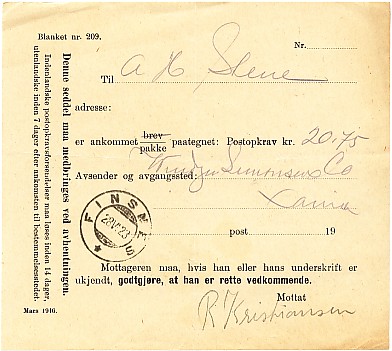 Blanket nr. 209.
Nr.
Til A H Stene
adresse:
er ankommet brev pakke paategnet: Postopkrav kr. 20.75
Simonsens Co
Avsender og avgangssted:
post 19
FINSNES
28 VI 23
Mottageren maa, hvis han eller hans underskrift er
ukjendt, godtgjøre, at han er rette vedkommende.
Mottat
R Kristiansen
Denne seddel maa medbringes ved avhentningen.
Indenlandske postopkravsforsendelser maa løses inden 14 dager,
utenlandske inden 7 dager efter ankomsten til bestemmelsesstedet.
Mars 1916.